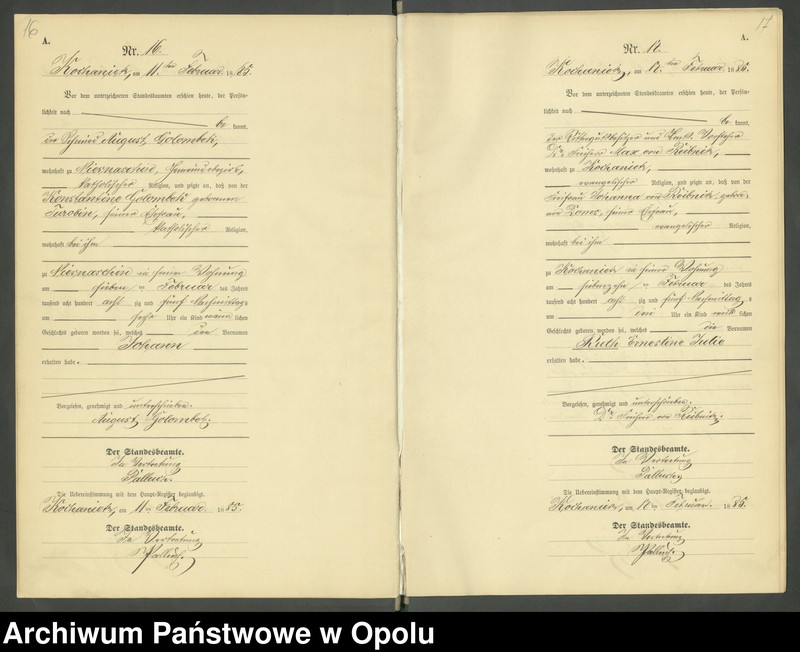 16
A.
Nr. 16.
Kochanietz, am 11. ten Februar 1885.
Vor dem unterzeichneten Standesbeamten erschien heute, der Persön-
lichkeit nach
be kannt,
der August Golombek,
wohnhaft zu
katholischer Religion, und zeigte an, daß von der
Golombek geborenen
seiner Ehefrau,
katholischer Religion,
wohnhaft bei ihm
zu in seiner Wohnung
am sieben ten Februar des Jahres
tausend acht hundert acht zig und fünf Nachmittags
um sechs Uhr ein Kind männ lichen
Geschlechts geboren worden sei, welches den Vornamen
Johann
erhalten habe.
Vorgelesen, genehmigt und unterschrieben.
August Golombek.
Der Standesbeamte.
In Vertretung
Die Uebereinstimmung mit dem Haupt-Register beglaubigt.
Kochanietz, am 11 ten Februar 1885.
Der Standesbeamte.
In Vertretung
17
A.
Nr. 17.
Kochanietz, am 17. ten Februar 1885.
Vor dem unterzeichneten Standesbeamten erschien heute, der Persön-
lichkeit nach
be kannt,
der Rittergutsbesitzer und Amts Vorsteher
Dr. Freiherr Max von Reibnitz,
wohnhaft zu Kochanietz,
evangelischer Religion, und zeigte an, daß von der
Freifrau Johanna von Reibnitz, gebore-
seiner Ehefrau,
evangelischer Religion,
wohnhaft bei ihm
zu Kochanietz in seiner Wohnung
am ten Februar des Jahres
tausend acht hundert acht zig und fünf Nachmittag s
um ein Uhr ein Kind weib lichen
Geschlechts geboren worden sei, welches die Vornamen
Ruth Ernestine Julie
erhalten habe.
Vorgelesen, genehmigt und unterschrieben.
Dr. Freiherr von Reibnitz.
Der Standesbeamte.
In Vertretung
Die Uebereinstimmung mit dem Haupt-Register beglaubigt.
Kochanietz, am 17 ten Februar 1885.
Der Standesbeamte.
In Vertretung
Archiwum Państwowe w Opolu